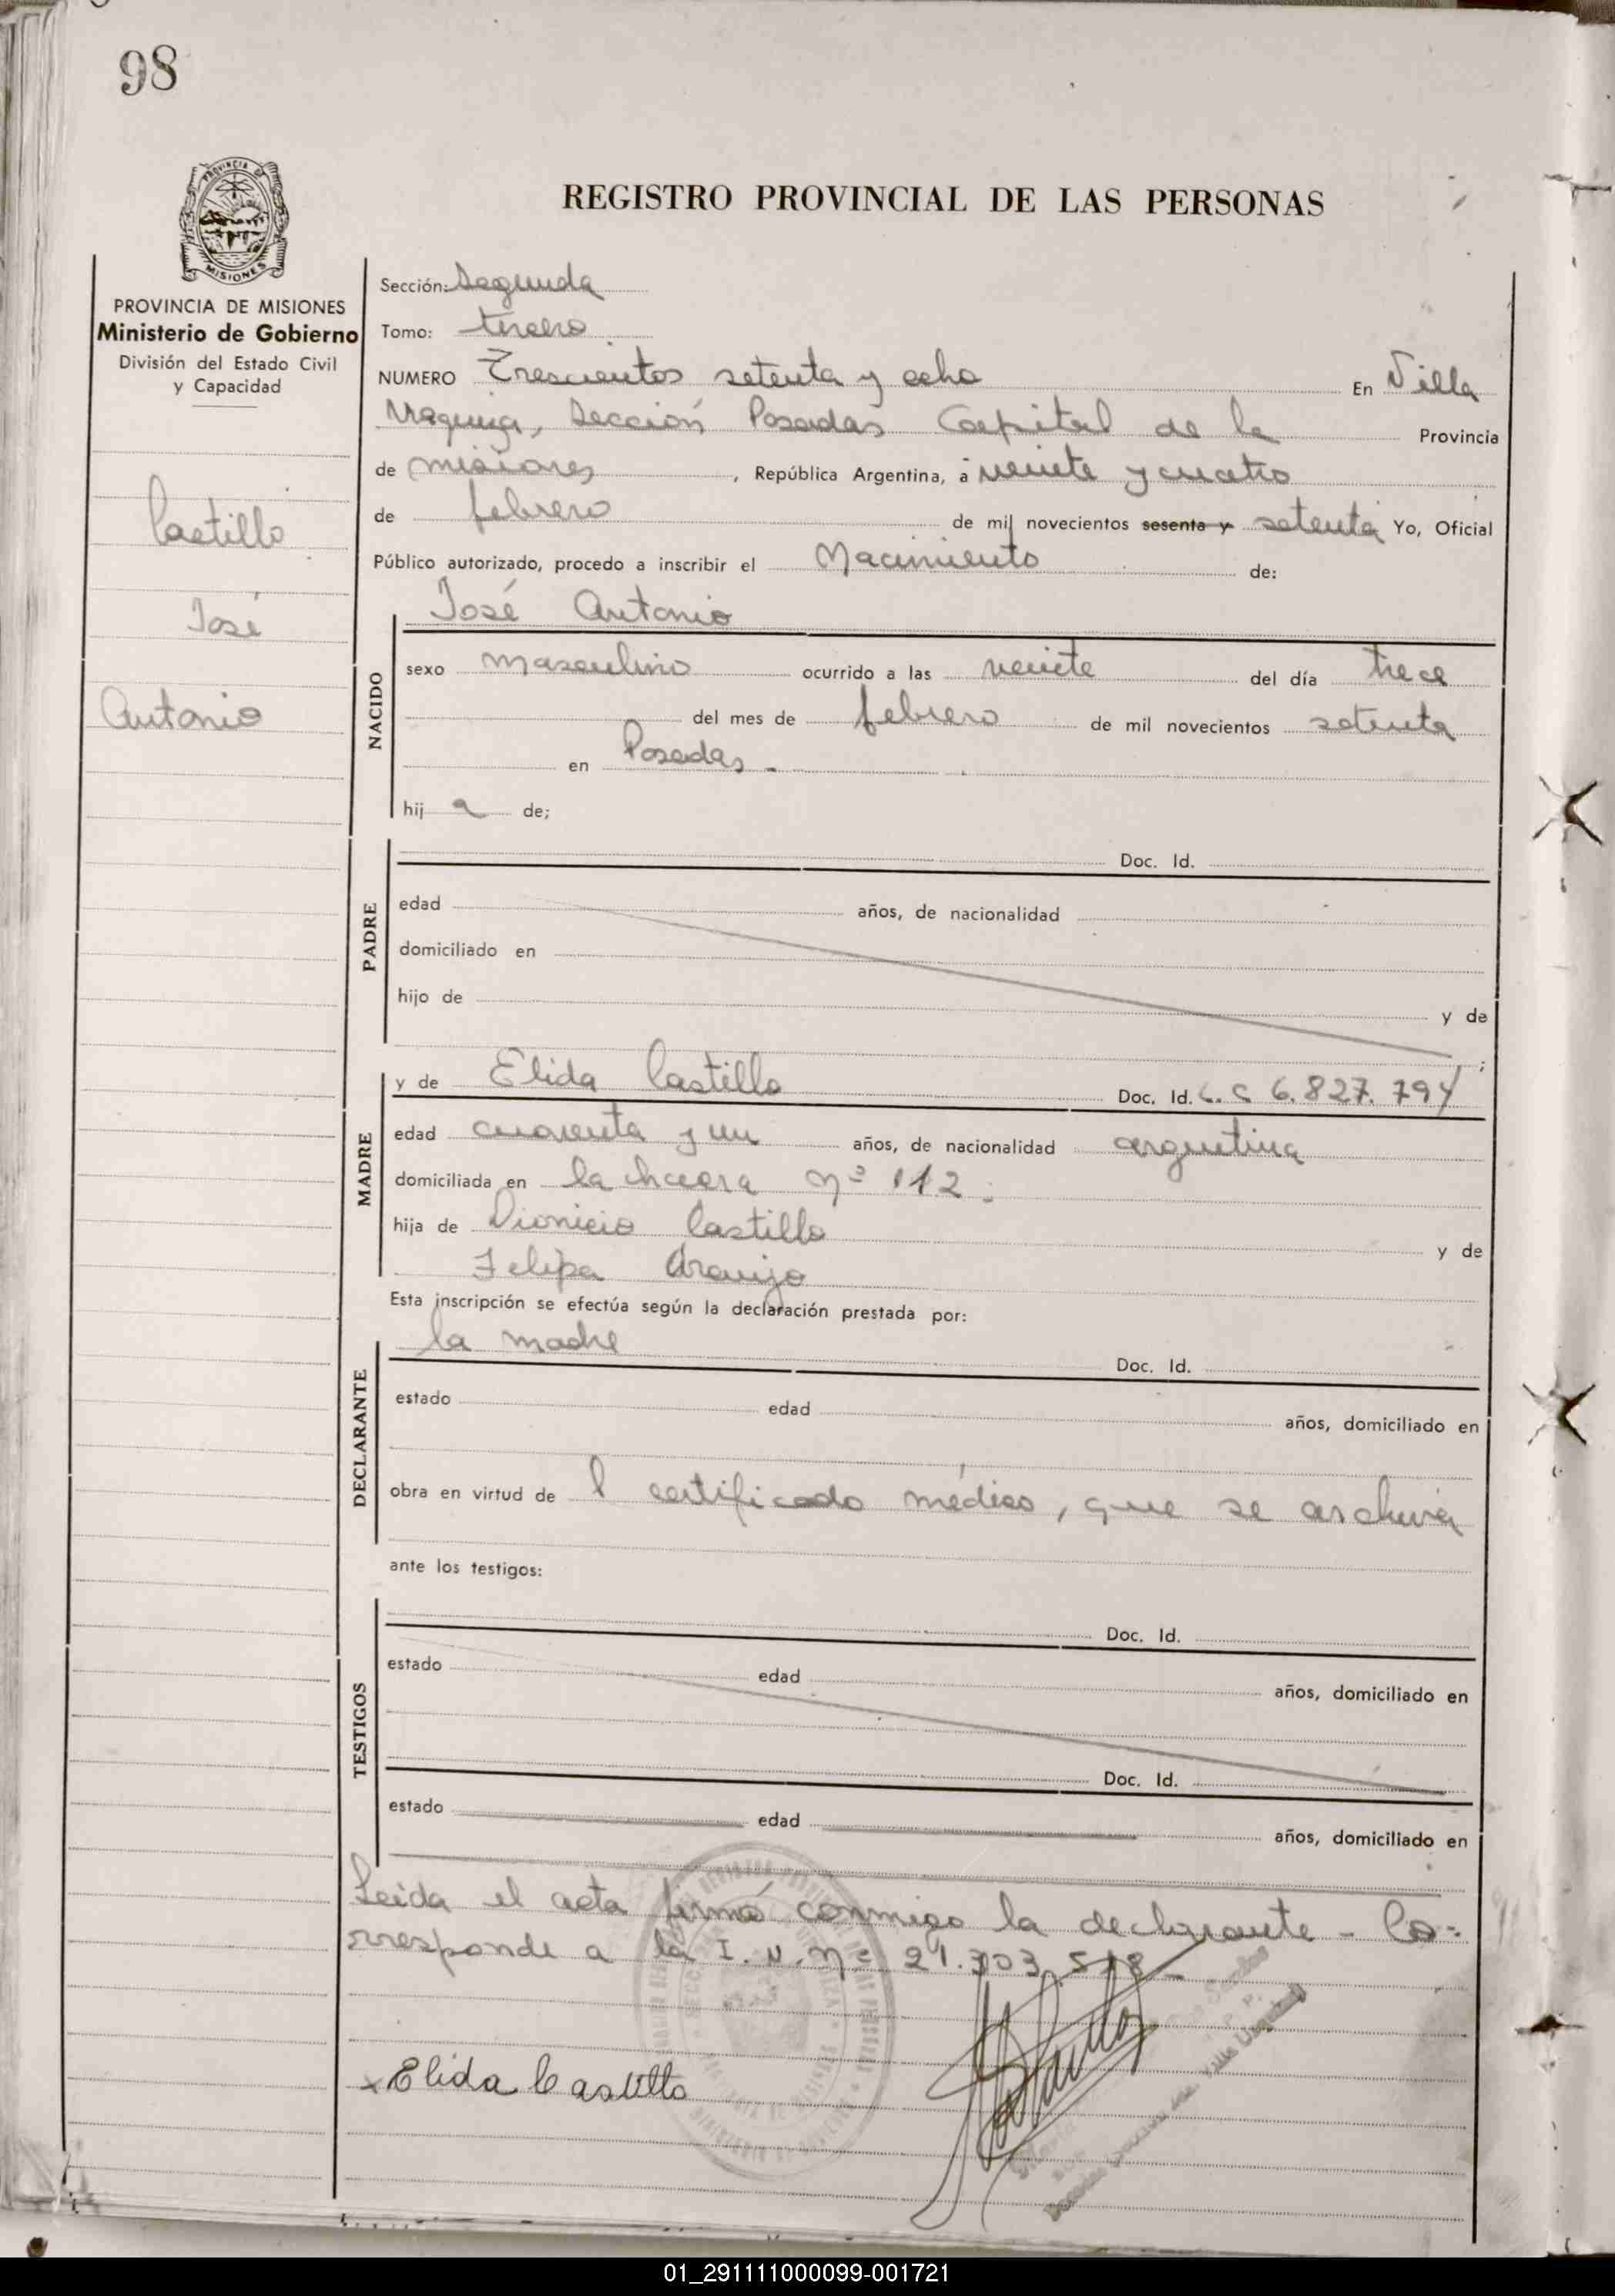 98
PROVINCIA DE
MISIONES
REGISTRO PROVINCIAL DE LAS PERSONAS
PROVINCIA DE MISIONES
Ministerio de Gobierno
División del Estado Civil
y Capacidad
Castillo
José
Antonio
Sección: Segunda
Tomo: tercero
NUMERO Trescientos setenta y ocho En Villa
Urquiza, Sección Posadas Capital de la Provincia
de misiones, República Argentina, a veinte y cuatro
de febrero de mil novecientos sesenta y setenta Yo, Oficial
Público autorizado, procedo a inscribir el Nacimiento de:
José Antonio
NACIDO
sexo masculino ocurrido a las veinte del día trece
del mes de febrero de mil novecientos setenta
en Posadas.-
hij a de;
PADRE
Doc. Id.
edad años, de nacionalidad
domiciliado en
hijo de y de
;
MADRE
y de Elida Castillo Doc. Id. L. C 6.827.794
edad cuarenta y un años, de nacionalidad argentina
domiciliada en la chacra nº 112.
hija de Dionicio Castillo y de
Felipa Araujo
Esta inscripción se efectúa según la declaración prestada por:
DECLARANTE
la madre Doc. Id.
estado edad años, domiciliado en
obra en virtud de l certificado médico, que se archiva
ante los testigos:
TESTIGOS
Doc. Id.
estado edad años, domiciliado en
Doc. Id.
estado edad años, domiciliado en
Leida el acta firmó conmigo la declarante - Co=
rresponde a la I. N. nº 21.303.518-
x Elida Castillo
Villa Urquiza
01_291111000099-001721